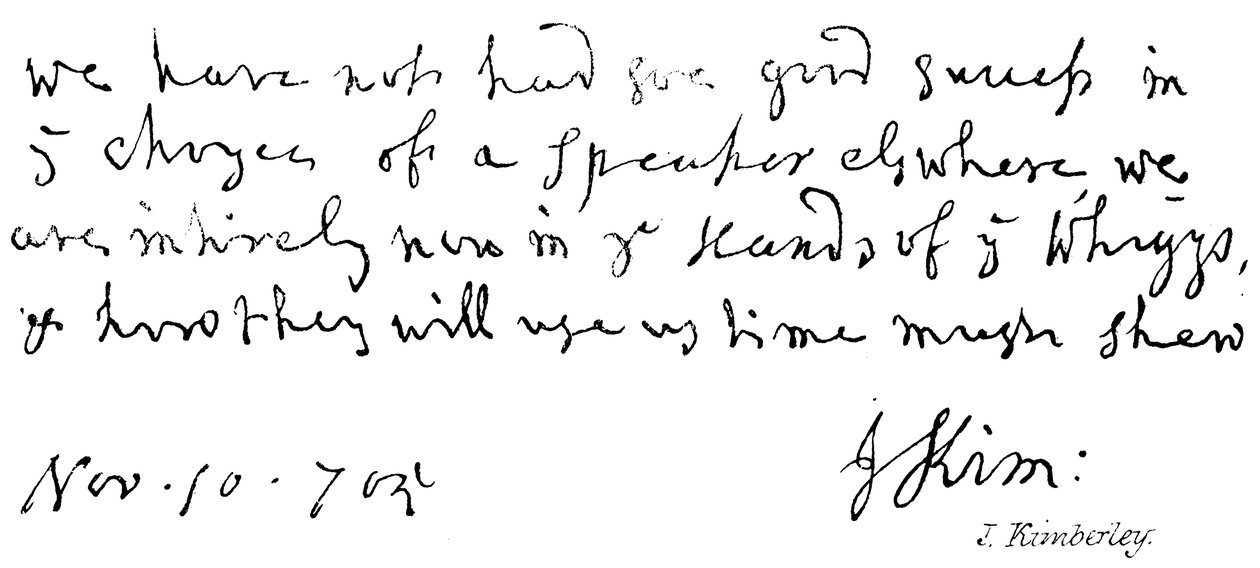 we have not had soe good success in
ȳ choyce of a Speaker elswhere, we
are intirely now in yᵉ Hands of ȳ Whiggs,
& how they will use us time must shew
J Kim:
Nov. 10. 705
J. Kimberley.